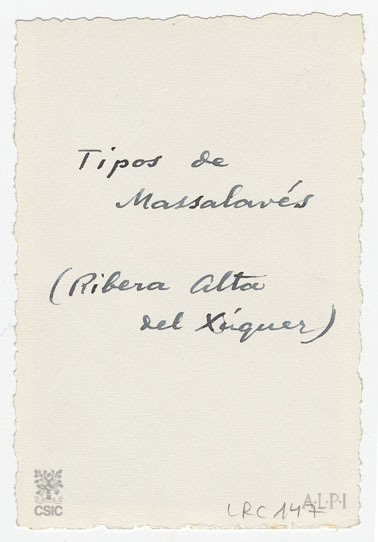 Tipos de
Massalavés
(Ribera Alta
del Xúquer)
CSIC
LRC 147
A·L·P·I